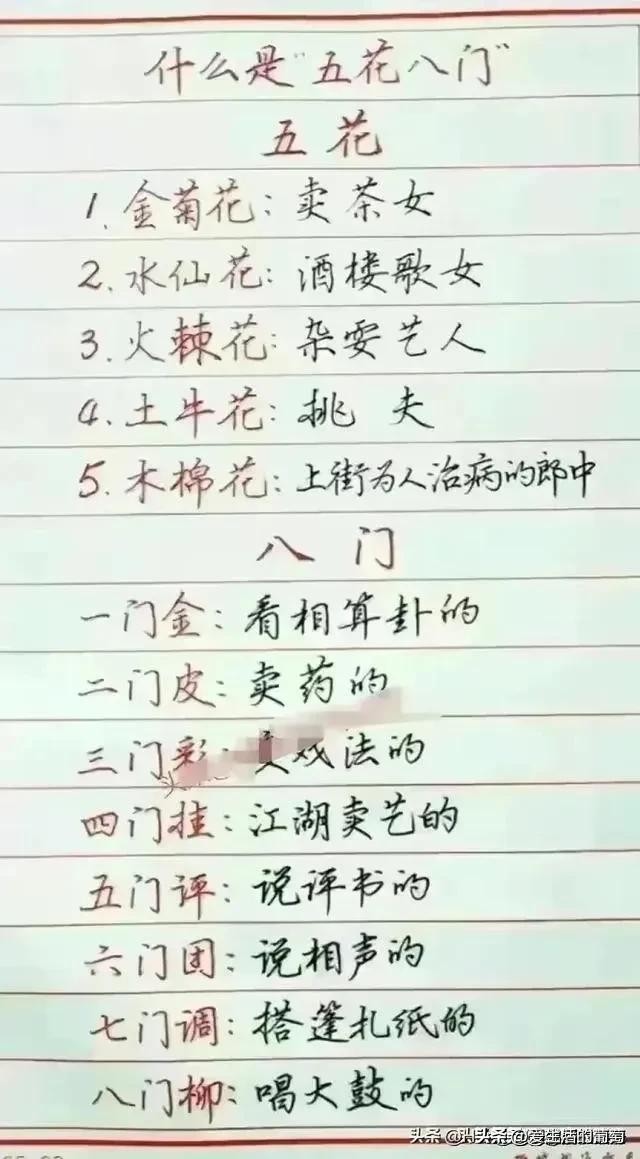 什么是"五花八门"
五花
1.金菊花：卖茶女
2.水仙花：酒楼歌女
3.火棘花：杂耍艺人
4.土牛花：挑夫
5.木棉花：上街为人治病的郎中
八门
一门金：看相算卦的
二门皮：卖药的
三门彩：变戏法的
四门挂：江湖卖艺的
五门评：说评书的
六门团：说相声的
七门调：搭篷扎纸的
八门柳：唱大鼓的
头条 @爱生活的葡萄